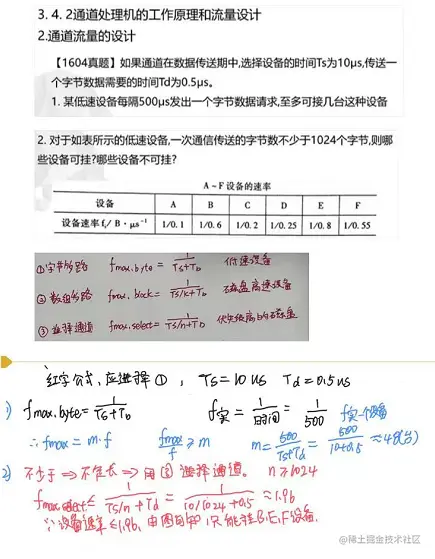 3. 4. 2通道处理机的工作原理和流量设计
2.通道流量的设计
【1604真题】如果通道在数据传送期中,选择设备的时间Ts为10μs,传送一
个字节数据需要的时间Td为0.5μs。
1. 某低速设备每隔500μs发出一个字节数据请求,至多可接几台这种设备
2. 对于如表所示的低速设备,一次通信传送的字节数不少于1024个字节,则哪
些设备可挂?哪些设备不可挂?
A ~ F 设备的速率
设备 A B C D E F
设备速率 fᵢ/ B · μs⁻¹ 1/0.1 1/0.6 1/0.2 1/0.25 1/0.8 1/0.55
①字节多路 fmax.byte = 1/(Ts+TD) 低速设备
② 数组多路 fmax.block = 1/(Ts/k+TD) 磁盘高速设备
③ 选择通道 fmax.select = 1/(Ts/n+TD) 优先级高的磁盘
红字公式,应选择①, Ts=10us Td=0.5us
1) fmax.byte = 1/(Ts+TD) f实 = 1/时间 = 1/500 f实一个设备
∴ fmax = m·f fmax/f ≥ m m = 500/(Ts+Td) = 500/(10+0.5) ≈ 48(台)
2) 不少于 => 不定长 => 用③选择通道。 n ≥ 1024
fmax.select ≤ 1/(Ts/n+Td) = 1/(10/1024+0.5) ≈ 1.96
∵设备速率≤1.96, 由图可知,只能挂B,E,F设备.
@稀土掘金技术社区